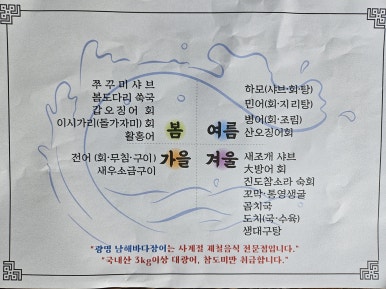 쭈꾸미샤브
봄도다리 쑥국
갑오징어 회
이시가리(돌가자미) 회
활홍어
봄
여름
하모(샤브·회·탕)
민어(회·지리탕)
병어(회·조림)
산오징어회
전어 (회·무침·구이)
새우소금구이
가을
겨울
새조개 샤브
大방어 회
진도참소라 숙회
꼬막·통영생굴
곰치국
도치(국·수육)
생대구탕
"광명 남해바다장어는 사계절 제철음식 전문점입니다."
"국내산 3kg이상 대광어, 참도미만 취급합니다."